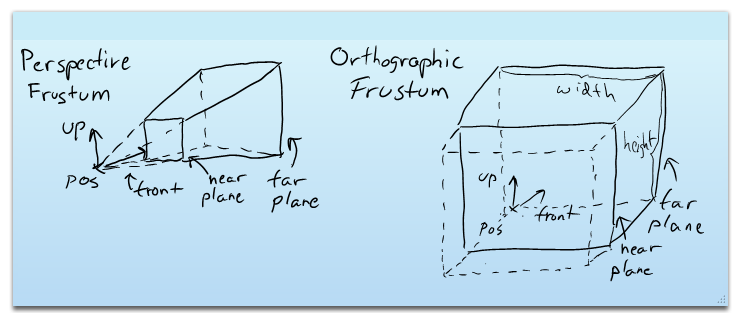 Perspective
Frustum
up
pos
front
near
plane
far
plane
Orthographic
Frustum
width
height
up
front
pos
far
plane
near
plane